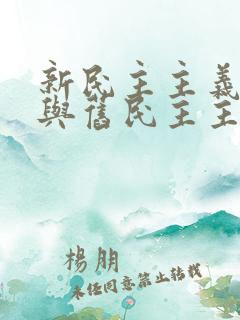 新民主主義
與舊民主主
楊朋
未任同意禁止轉載